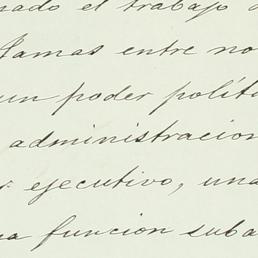 nado el trabajo
Jamas entre no
un poder polít
administracion
r ejecutivo, una
na funcion suba